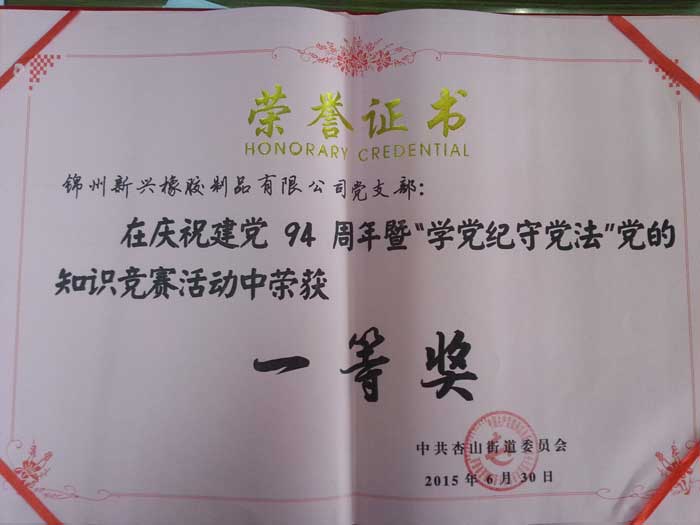 荣誉证书
HONORARY CREDENTIAL
锦州新兴橡胶制品有限公司党支部：
在庆祝建党 94 周年暨“学党纪守党法”党的
知识竞赛活动中荣获
一等奖
中共杏山街道委员会
2015 年 6 月 30 日